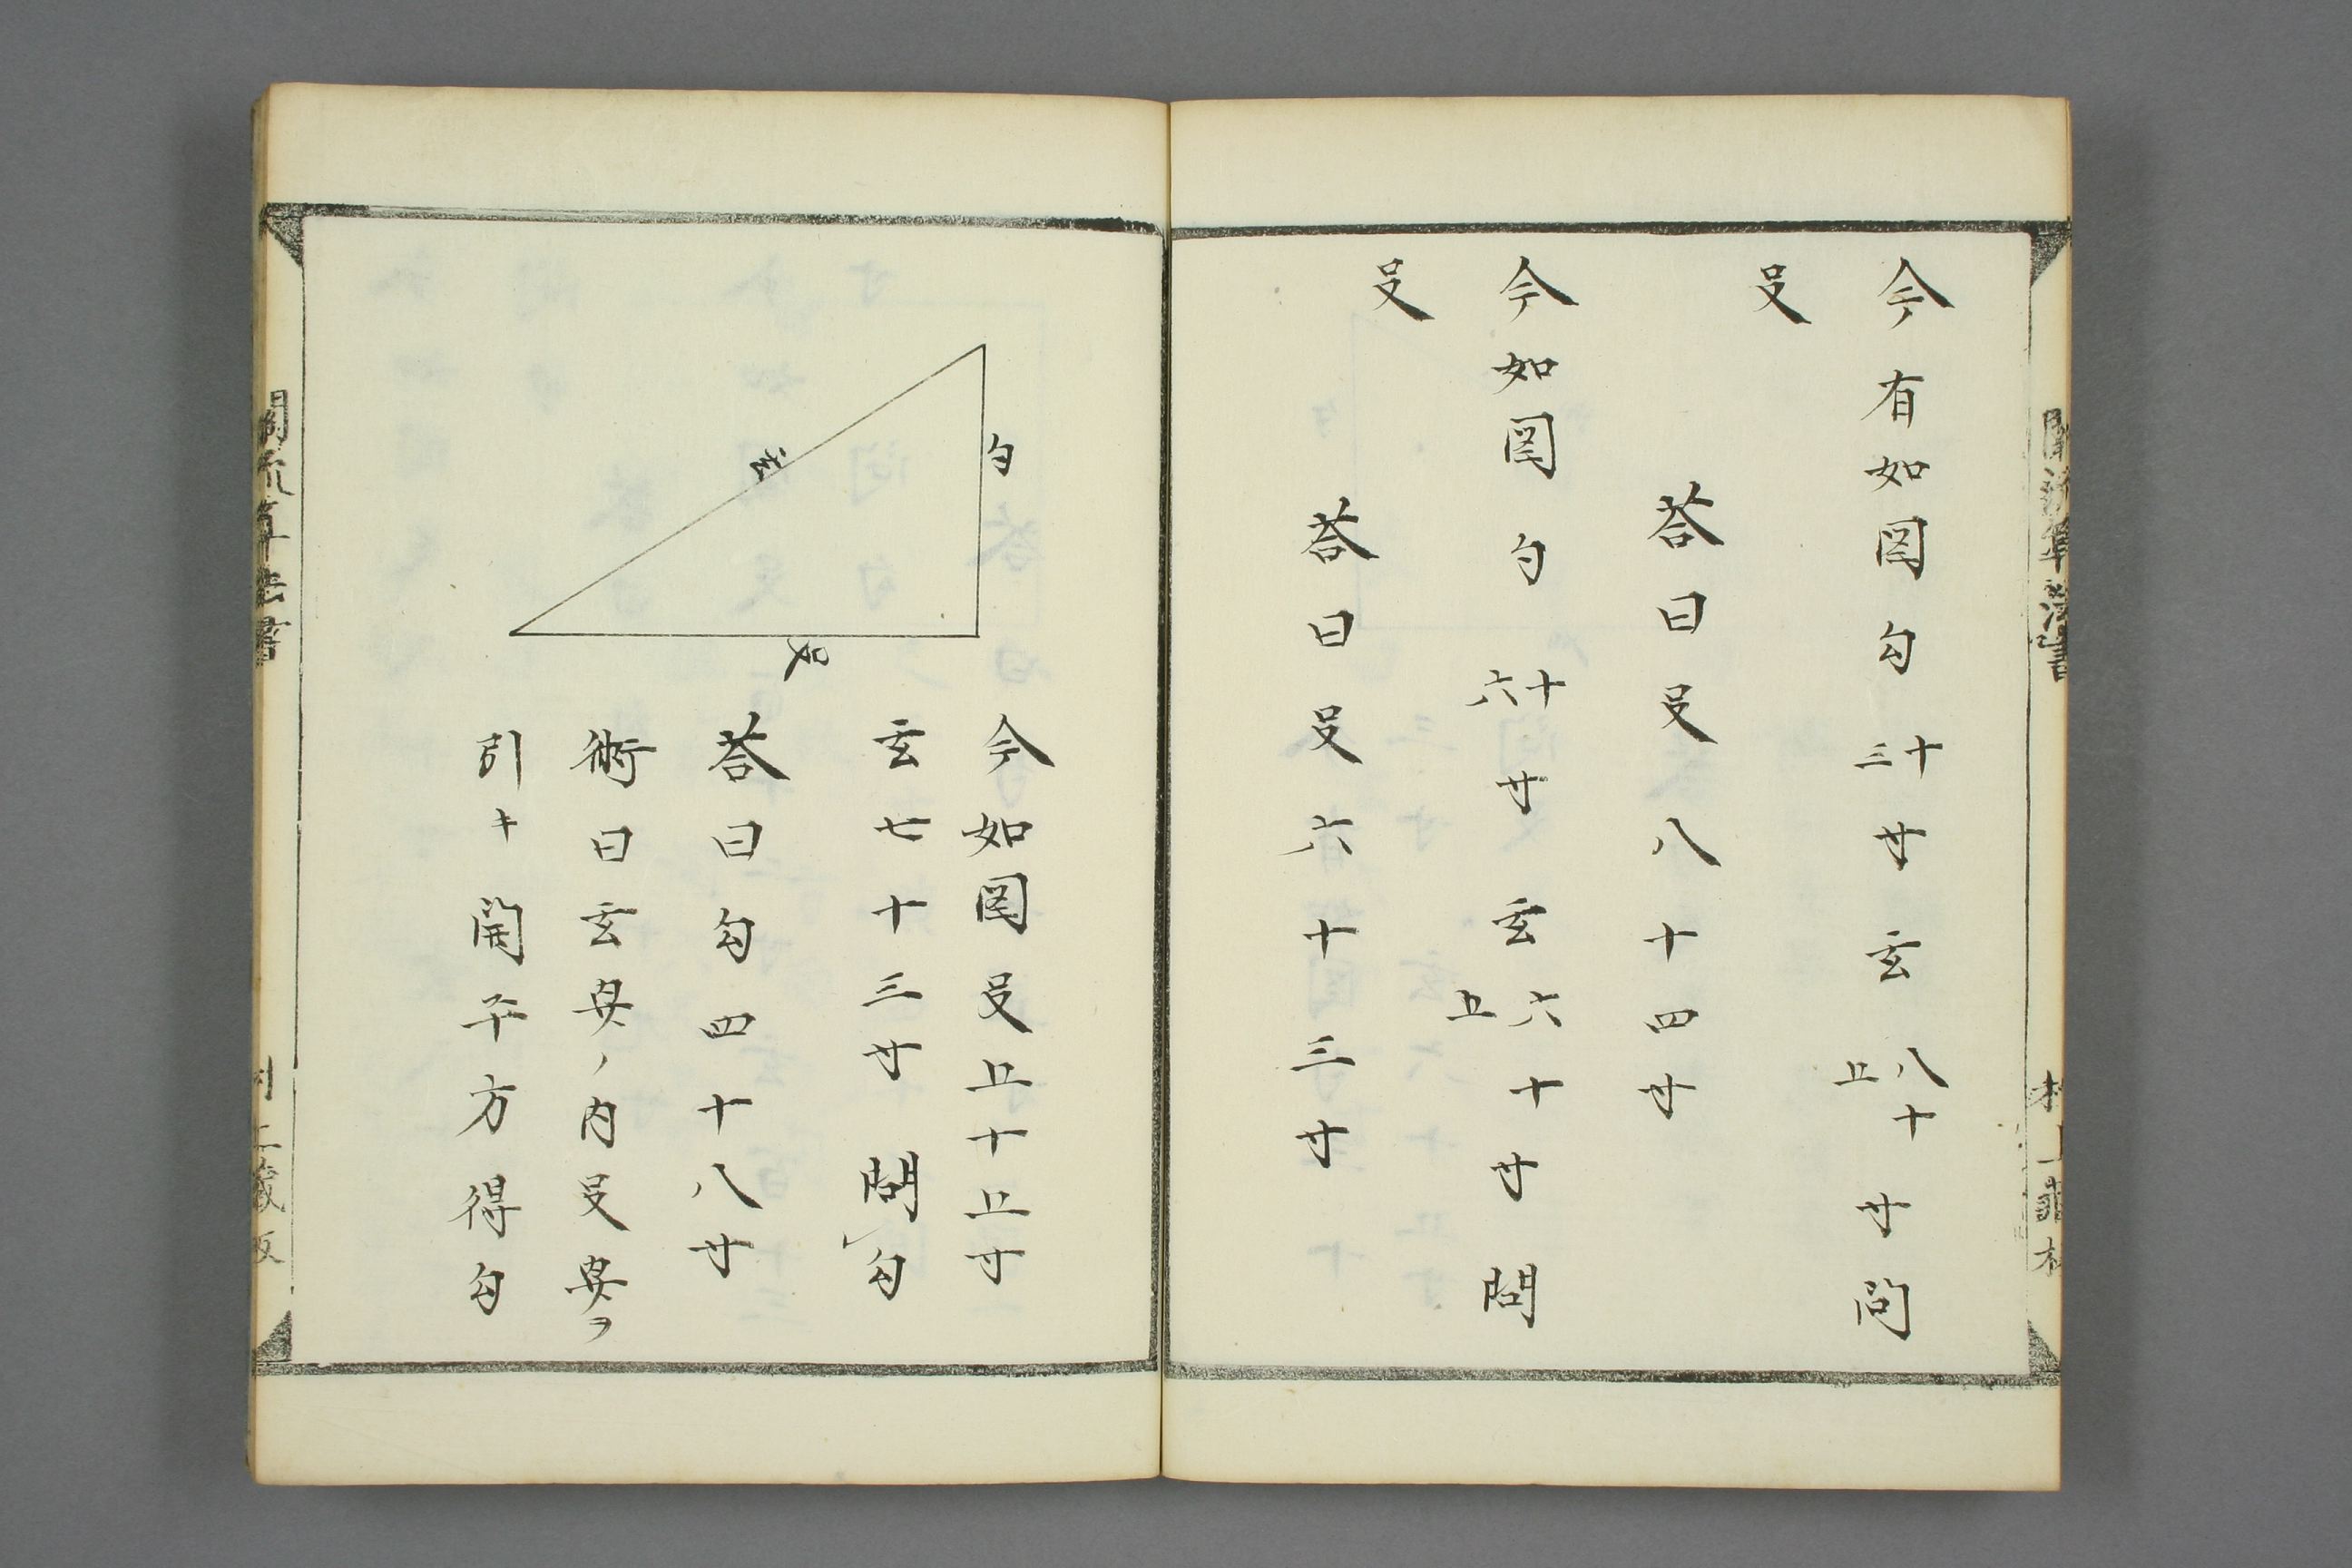 今有如図勾十三寸玄八十五寸問
殳
荅曰殳八十四寸
今如図勾十六寸玄六十五寸問
殳
荅曰殳六十三寸
勾
玄
殳
今如図殳五十五寸
玄七十三寸問勾
荅曰勾四十八寸
術曰玄冪ノ内殳冪ヲ
引キ開平方得勾
關流算法書